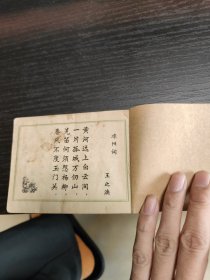 凉州词
王之涣
黄河远上白云间，
一片孤城万仞山。
羌笛何须怨杨柳，
春风不度玉门关。